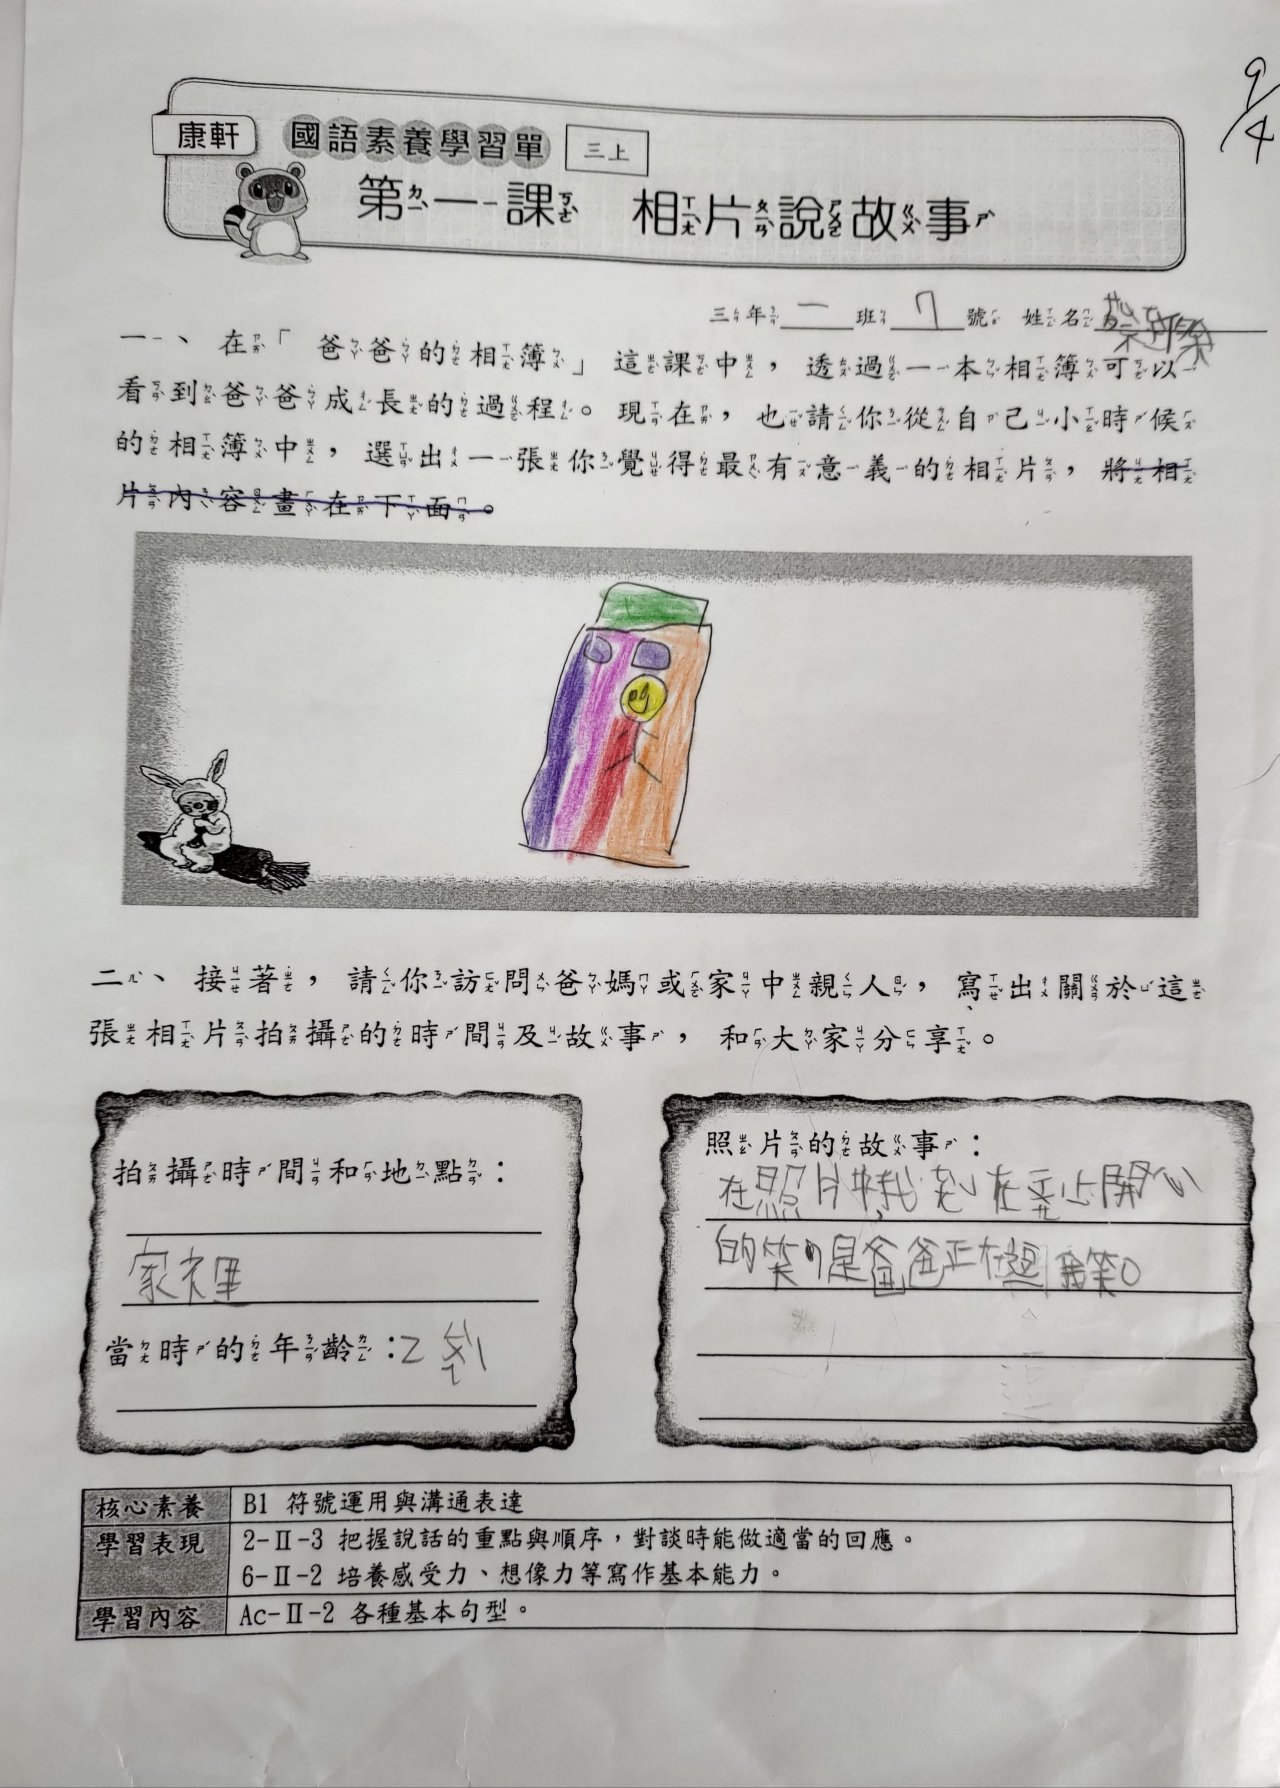 9/4
康軒 國語素養學習單 三上
第一課 相片說故事
三年一班7號 姓名
一、在「爸爸的相簿」這課中，透過一本相簿可以
看到爸爸成長的過程。現在，也請你從自己小時候
的相簿中，選出一張你覺得最有意義的相片，將相
片內容畫在下面。
二、接著，請你訪問爸媽或家中親人，寫出關於這
張相片拍攝的時間及故事，和大家分享。
拍攝時間和地點：
家裡
當時的年齡：2歲
照片的故事：
在照片中我 在 開心
的笑，是爸爸正在逗我笑。
核心素養 B1 符號運用與溝通表達
學習表現 2-Ⅱ-3 把握說話的重點與順序，對談時能做適當的回應。
6-Ⅱ-2 培養感受力、想像力等寫作基本能力。
學習內容 Ac-Ⅱ-2 各種基本句型。